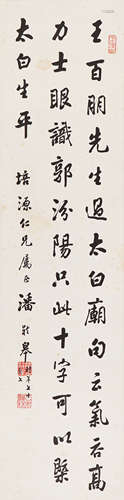 王百朋先生過太白廟句云氣吞高
力士眼識郭汾陽只此十字可以槩
太白生平
培源仁兄屬正 潘齡皋